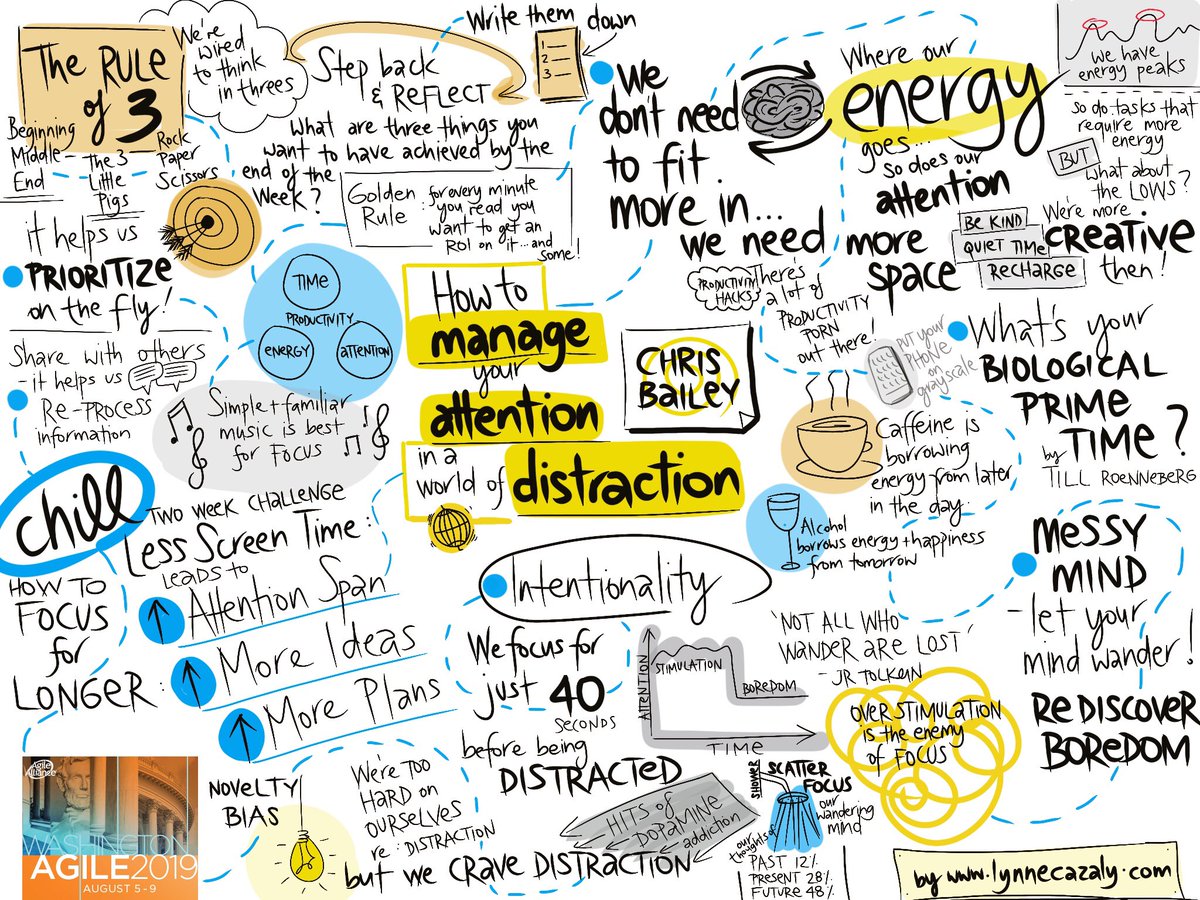 The RULE
of 3
We're
wired
to think
in threes
Beginning
Middle
End
The 3
Little
Pigs
Rock
Paper
Scissors
it helps us
PRIORITIZE
on the fly!
Share with others
- it helps us
RE-PROCESS
information
Step back
& REFLECT
Write them down
1
2
3
What are three things you
want to have achieved by the
end of the
Week?
Golden
Rule:
for every minute
you read you
want to get an
ROI on it...and
some!
TIME
PRODUCTIVITY
ENERGY
ATTENTION
Simple + familiar
music is best
for FOCUS
How to
manage
your
attention
in a
world of distraction
CHRIS
BAILEY
We
don't need
to fit
more in...
we need more
space
PRODUCTIVITY
HACKS
There's
a lot of
PRODUCTIVITY
PORN
out there!
Where our
energy
goes...
so does our
attention
we have
energy peaks
so do tasks that
require more
energy
BUT
what about
the LOWS?
BE KIND
QUIET TIME
RECHARGE
We're more
CREATIVE
then!
PUT YOUR
PHONE
on
grayscale
What's your
BIOLOGICAL
PRIME
TIME?
by
TILL ROENNEBERG
Caffeine is
borrowing
energy from later
in the day
Alcohol
borrows energy + happiness
from tomorrow
chill
TWO WEEK CHALLENGE
Less Screen Time:
LEADS TO
Attention Span
More Ideas
More Plans
HOW TO
FOCUS
for
LONGER:
Intentionality
We focus for
just 40
SECONDS
before being
DISTRACTED
ATTENTION
STIMULATION
BOREDOM
TIME
'NOT ALL WHO
WANDER ARE LOST'
- JR TOLKEIN
MESSY
MIND
- let your
mind wander!
REDISCOVER
BOREDOM
OVERSTIMULATION
is the enemy
of FOCUS
Agile
Alliance
WASHINGTON
AGILE2019
AUGUST 5-9
NOVELTY
BIAS
We're TOO
HARD ON
OURSELVES
re: DISTRACTION
but we CRAVE DISTRACTION
HITS of
DOPAMINE
addiction
SHOWER
SCATTER
FOCUS
our
wandering
mind
our
thoughts of
PAST 12%
PRESENT 28%
FUTURE 48%
by www.lynnecazaly.com